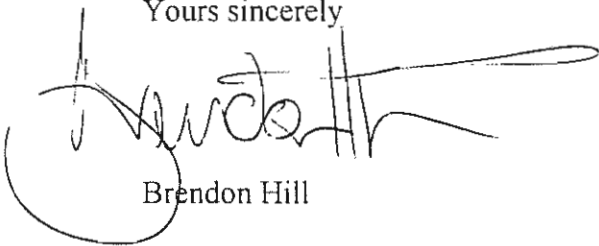 Yours sincerely
Brendon Hill